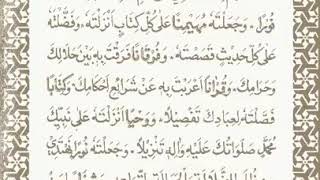 نُورًا. وَجَعَلْتَهُ مُهَيْمِنًا عَلَى كُلِّ كِتَابٍ أَنْزَلْتَهُ. وَفَضَّلْتَهُ
عَلَى كُلِّ حَدِيثٍ قَصَصْتَهُ. وَفُرْقَانًا فَرَقْتَ بِهِ بَيْنَ حَلَالِكَ
وَحَرَامِكَ. وَقُرْآنًا أَعْرَبْتَ بِهِ عَنْ شَرَائِعِ أَحْكَامِكَ. وَكِتَابًا
فَصَّلْتَهُ لِعِبَادِكَ تَفْصِيلًا. وَوَحْيًا أَنْزَلْتَهُ عَلَى نَبِيِّكَ
مُحَمَّدٍ صَلَوَاتُكَ عَلَيْهِ وَآلِهِ تَنْزِيلًا. وَجَعَلْتَهُ نُورًا نَهْتَدِي